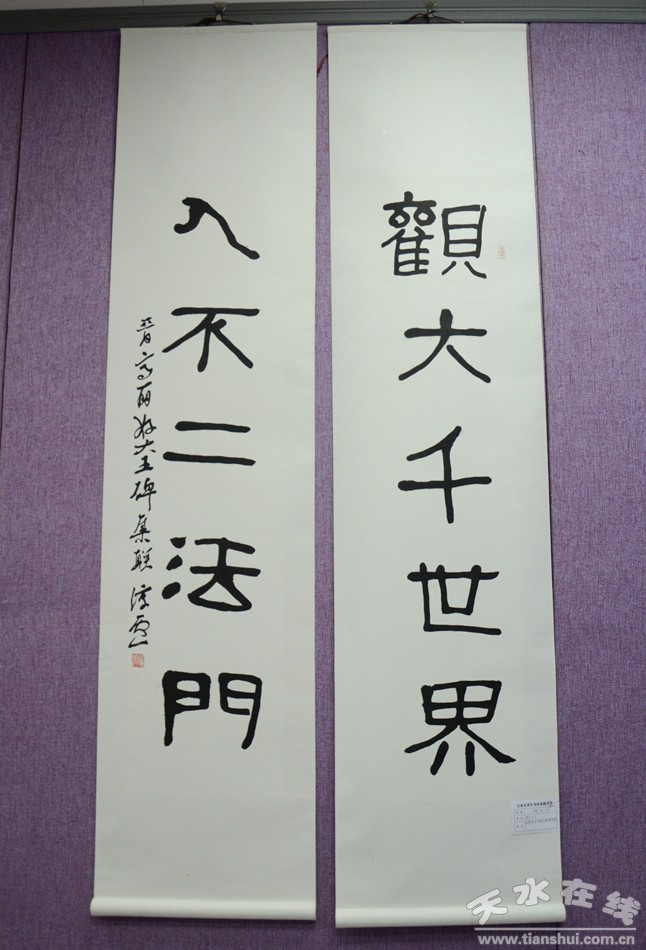 觀大千世界
入不二法門
晉高丽好大王碑集联
天水在线
www.tianshui.com.cn